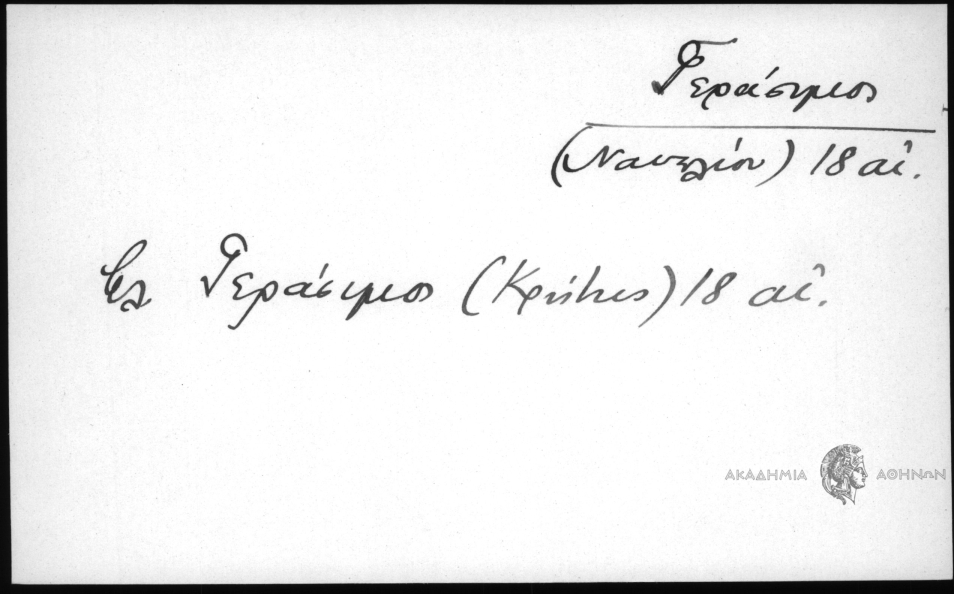 Γεράσιμος
(Ναυπλίου) 18 αἰ.
βλ Γεράσιμος (Κρήτης) 18 αἰ.
ΑΚΑΔΗΜΙΑ ΑΘΗΝΩΝ